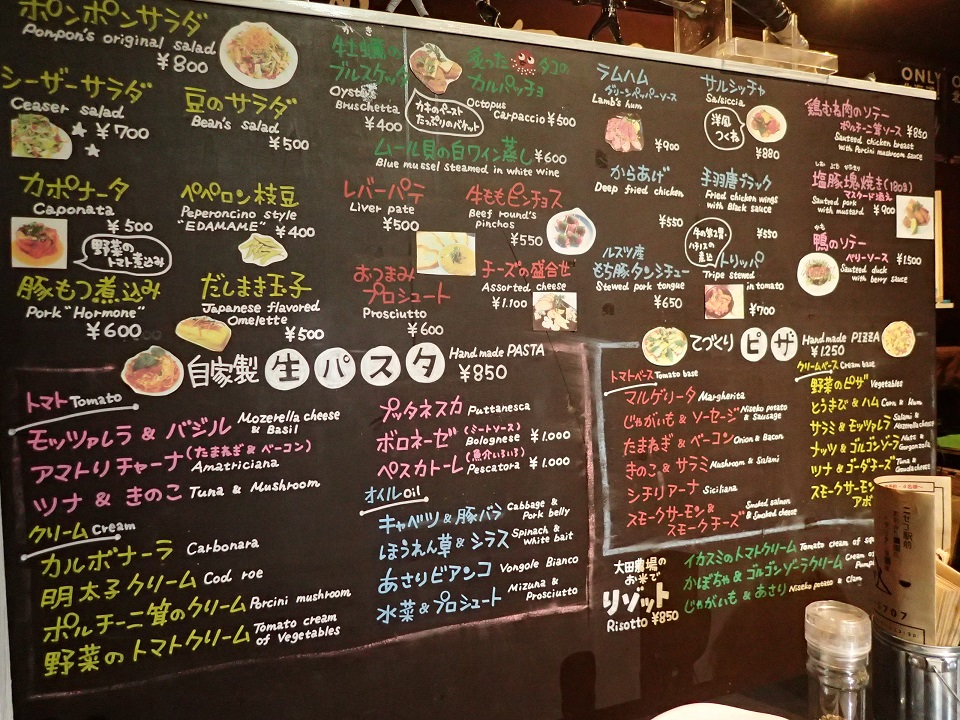 ポンポンサラダ
Ponpon's original salad
¥800
シーザーサラダ
Ceaser salad
¥700
豆のサラダ
Bean's salad
¥500
カポナータ
Caponata
¥500
野菜の
トマト煮込み
ペペロン枝豆
Peperoncino style
"EDAMAME" ¥400
豚もつ煮込み
Pork "Hormone"
¥600
だしまき玉子
Japanese flavored
Omelette
¥500
かき
牡蠣の
ブルスケッタ
Oyster
Bruschetta
¥400
カキのペースト
たっぷりのバケット
炙ったタコの
カルパッチョ
Octopus
Carpaccio ¥500
ムール貝の白ワイン蒸し ¥600
Blue mussel steamed in white wine
レバーパテ
Liver pate
¥500
牛ももピンチョス
Beef round's
pinchos
¥550
おつまみ
プロシュート
Prosciutto
¥600
チーズの盛合せ
Assorted cheese
¥1.100
ラムハム
グリーンペッパーソース
Lamb's hum
¥900
サルシッチャ
Salsiccia
洋風
つくね
¥880
からあげ
Deep fried chicken
¥550
手羽唐ブラック
Fried chicken wings
with Black sauce
¥550
ルスツ産
もち豚タンシチュー
Stewed pork tongue
¥650
牛の第2胃
ハチノスの
煮込
トリッパ
Tripe stewed
in tomato
¥700
鶏むね肉のソテー
ポルチーニ茸ソース ¥850
Sauteed chicken breast
with Porcini mushroom sauce
塩豚塊焼き(180g)
マスタード添え
Sauteed pork
with mustard ¥900
かも
鴨のソテー
ベリーソース ¥1500
Sauteed duck
with berry sauce
ONLY
自家製 生パスタ Handmade PASTA
¥850
トマト Tomato
モッツァレラ & バジル Mozerella cheese
& Basil
アマトリチャーナ(たまねぎ & ベーコン)
Amatriciana
ツナ & きのこ Tuna & Mushroom
クリーム Cream
カルボナーラ Carbonara
明太子クリーム Cod roe
ポルチーニ茸のクリーム Porcini mushroom
野菜のトマトクリーム Tomato cream
of Vegetables
プッタネスカ Puttanesca
ボロネーゼ(ミートソース) Bolognese ¥1.000
ペスカトーレ(魚介いろいろ) Pescatora ¥1.000
オイル Oil
キャベツ & 豚バラ Cabbage &
Pork belly
ほうれん草 & シラス Spinach &
white bait
あさりビアンコ Vongole Bianco
水菜 & プロシュート Mizuna &
Prosciutto
てづくり ピザ Handmade PIZZA
¥1250
トマトベース Tomato base
マルゲリータ Margherita
じゃがいも & ソーセージ Niseko potato
& Sausage
たまねぎ & ベーコン Onion & Bacon
きのこ & サラミ Mushroom & Salami
シチリアーナ Siciliana
スモークサーモン &
スモークチーズ Smoked salmon
& Smoked cheese
クリームベース Cream base
野菜のピザ Vegetables
とうきび & ハム Corn & Hum
サラミ & モッツァレラ Salami &
Mozzarella cheese
ナッツ & ゴルゴンゾーラ Nuts &
Gorgonzola
ツナ & ゴーダチーズ Tuna &
Gouda cheese
スモークサーモン
アボ
大田農場の
お米で
リゾット
Risotto ¥850
イカスミのトマトクリーム Tomato cream of
かぼちゃ & ゴルゴンゾーラクリーム Cream of
じゃがいも & あさり Niseko potato & Clam
ニセコ駅前